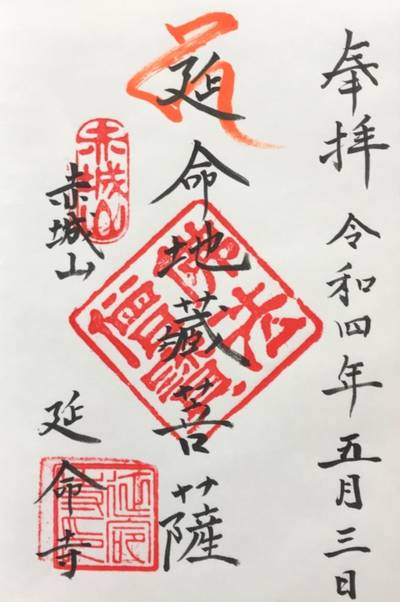 奉拝 令和四年五月三日
延命地蔵菩薩
赤城山
赤城山
延命寺